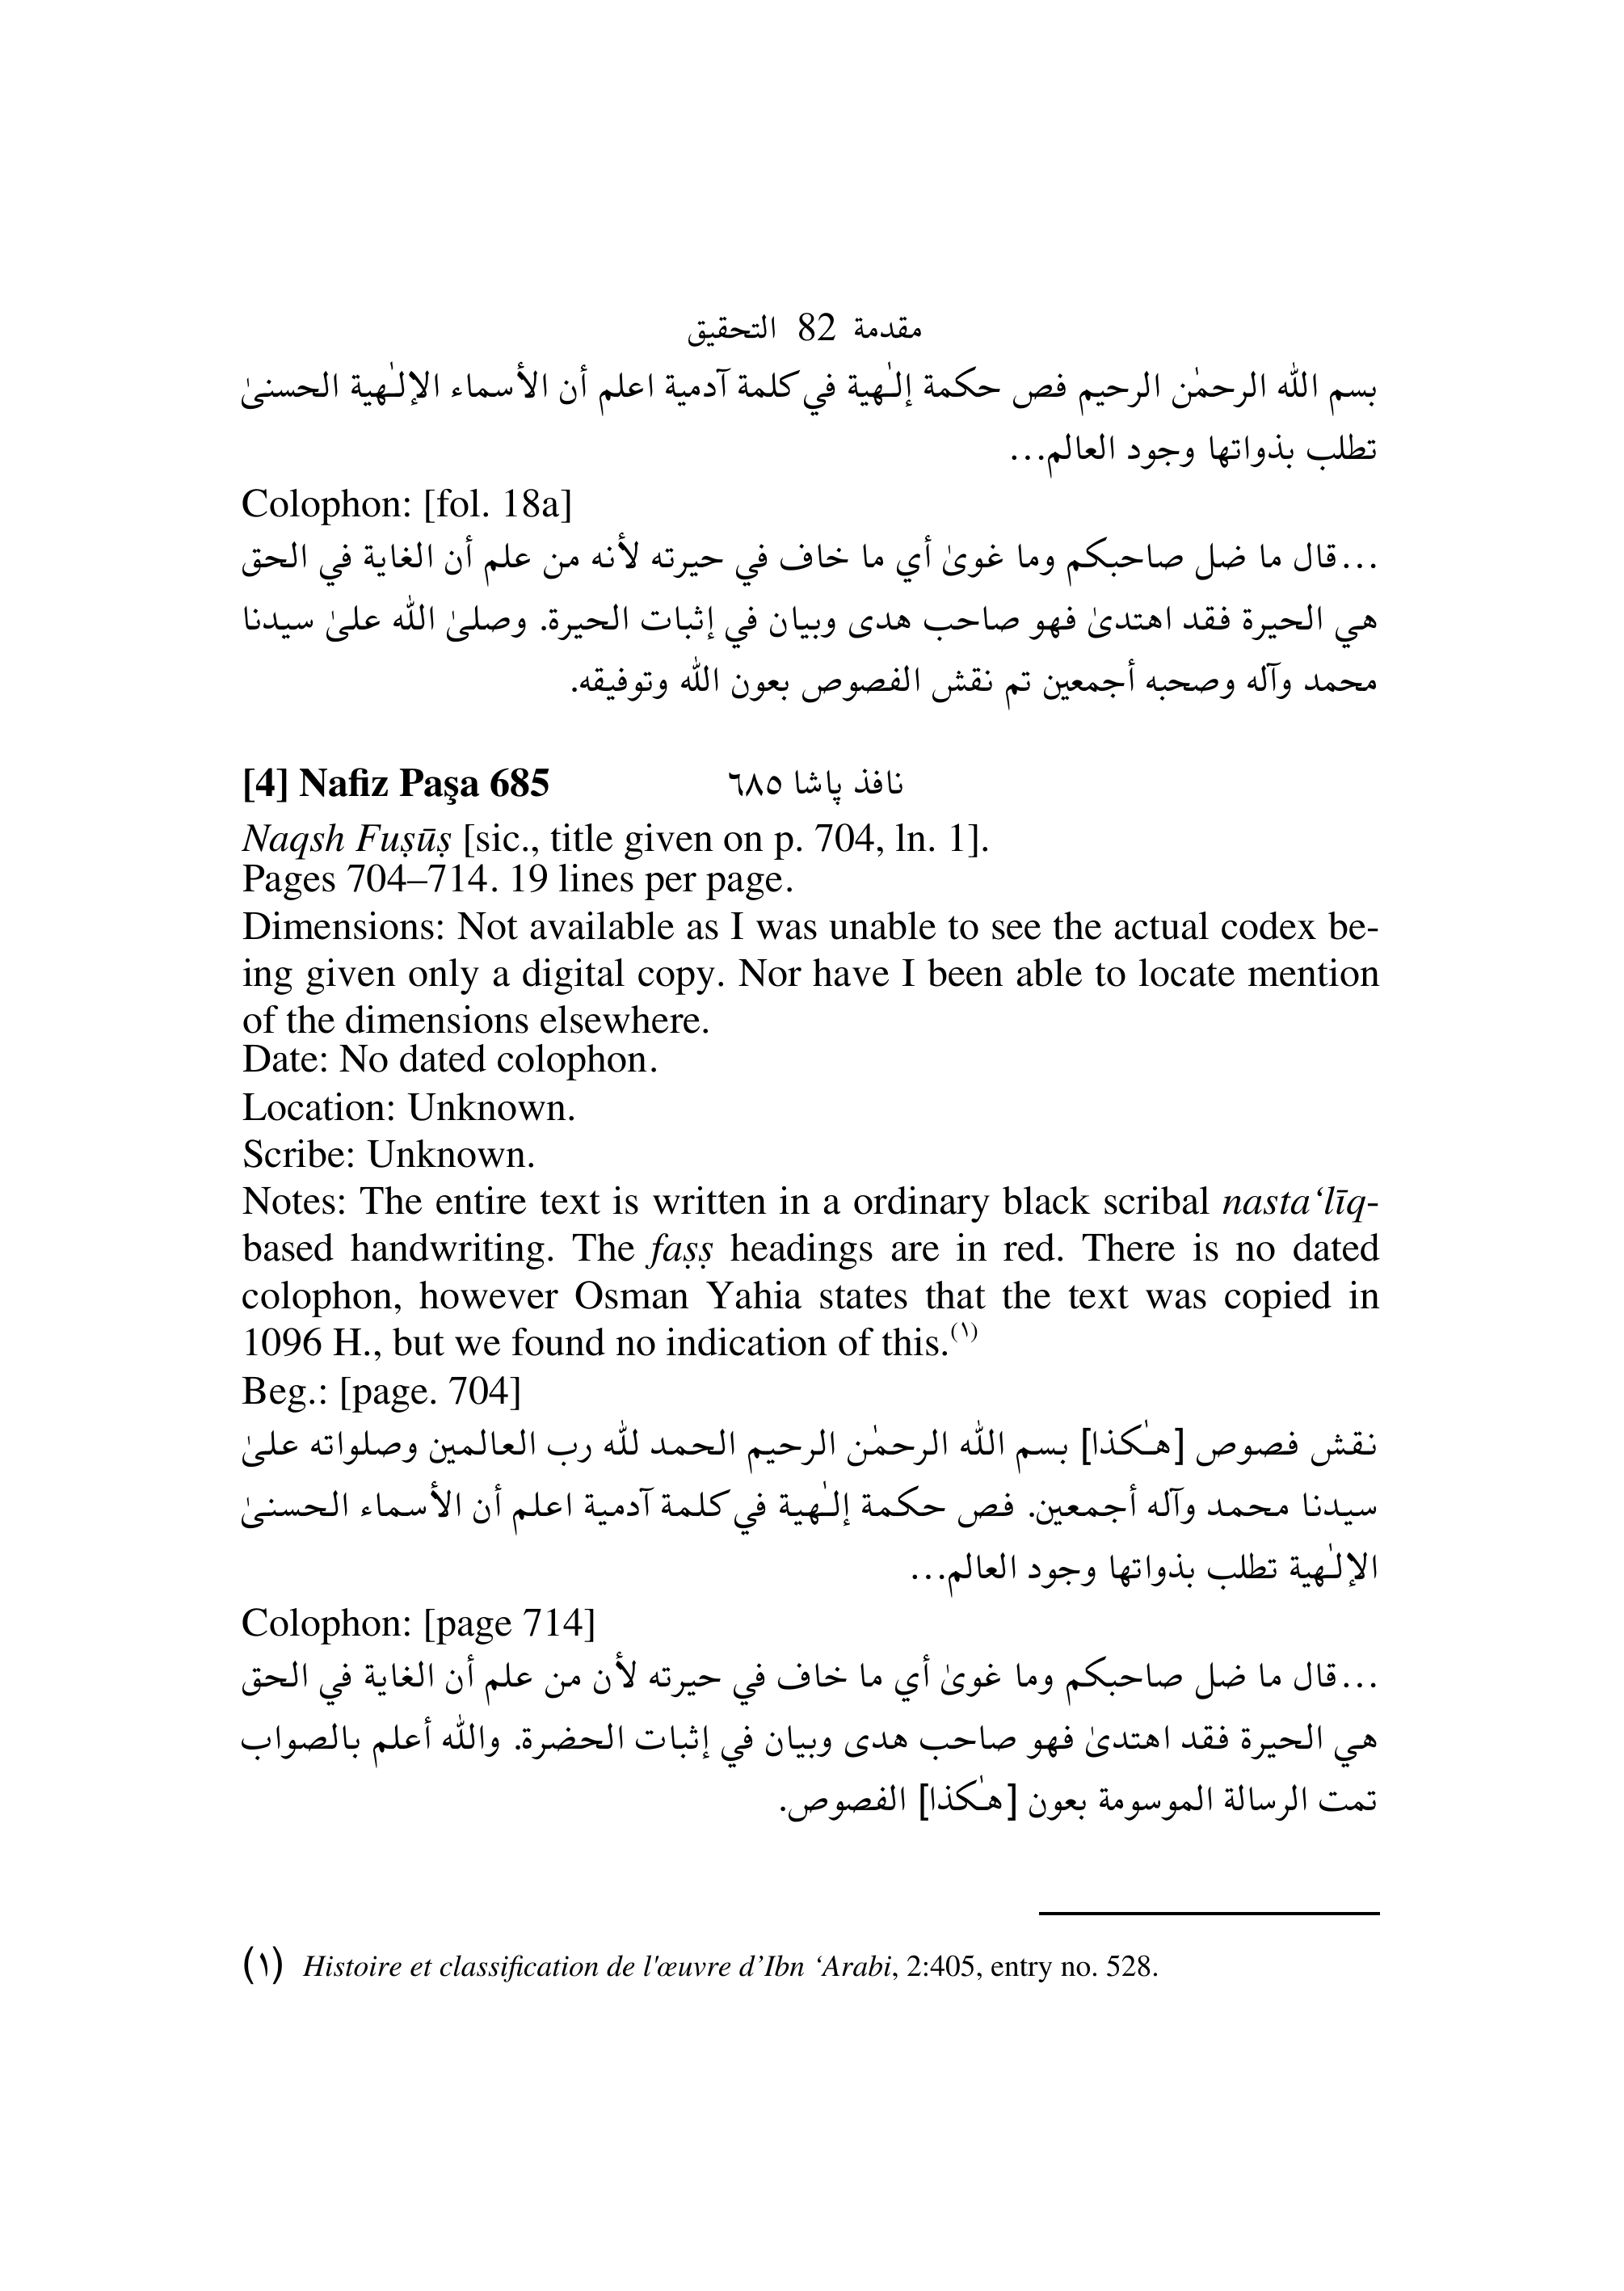 مقدمة 82 التحقيق
بسم الله الرحمٰن الرحيم فص حكمة إلـٰهية في كلمة آدمية اعلم أن الأسماء الإلـٰهية الحسنىٰ
تطلب بذواتها وجود العالم...
Colophon: [fol. 18a]
...قال ما ضل صاحبكم وما غوىٰ أي ما خاف في حيرته لأنه من علم أن الغاية في الحق
هي الحيرة فقد اهتدىٰ فهو صاحب هدى وبيان في إثبات الحيرة. وصلىٰ الله علىٰ سيدنا
محمد وآله وصحبه أجمعين تم نقش الفصوص بعون الله وتوفيقه.
[4] Nafiz Paşa 685 نافذ پاشا ٦٨٥
Naqsh Fuṣūṣ [sic., title given on p. 704, ln. 1].
Pages 704–714. 19 lines per page.
Dimensions: Not available as I was unable to see the actual codex be-
ing given only a digital copy. Nor have I been able to locate mention
of the dimensions elsewhere.
Date: No dated colophon.
Location: Unknown.
Scribe: Unknown.
Notes: The entire text is written in a ordinary black scribal nasta‘līq-
based handwriting. The faṣṣ headings are in red. There is no dated
colophon, however Osman Yahia states that the text was copied in
1096 H., but we found no indication of this.(١)
Beg.: [page. 704]
نقش فصوص [هـٰكذا] بسم الله الرحمٰن الرحيم الحمد لله رب العالمين وصلواته علىٰ
سيدنا محمد وآله أجمعين. فص حكمة إلـٰهية في كلمة آدمية اعلم أن الأسماء الحسنىٰ
الإلـٰهية تطلب بذواتها وجود العالم...
Colophon: [page 714]
...قال ما ضل صاحبكم وما غوىٰ أي ما خاف في حيرته لأن من علم أن الغاية في الحق
هي الحيرة فقد اهتدىٰ فهو صاحب هدى وبيان في إثبات الحضرة. والله أعلم بالصواب
تمت الرسالة الموسومة بعون [هـٰكذا] الفصوص.
(١) Histoire et classification de l'œuvre d’Ibn ‘Arabi, 2:405, entry no. 528.